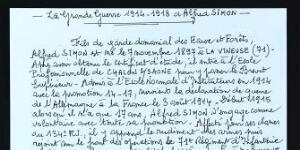 La Grande Guerre 1914-1918 d'Alfred SIMON
Fils de garde domanial des Eaux et Forêts
Alfred SIMON est né le 7 novembre 1897 à LA VINEUSE (71)
Après avoir obtenu le certificat d'étude, il entre à l'Ecole
Professionnelle de CHALON S/SAONE pour y passer le Brevet
Supérieur - Admis à l'Ecole Normale d'Instituteurs en 1914
avec la promotion 14-17, survient la déclaration de guerre
de l'Allemagne à la France le 3 août 1914 - Début 1915
alors qu'il n'a que 17 ans, Alfred SIMON s'engage comme
volontaire avec toute sa promotion. Affecté pour ses classes
au 134e R.I. il y apprend le rudiment des armes puis
rejoint le front des opérations le 71e régiment d'Infanterie